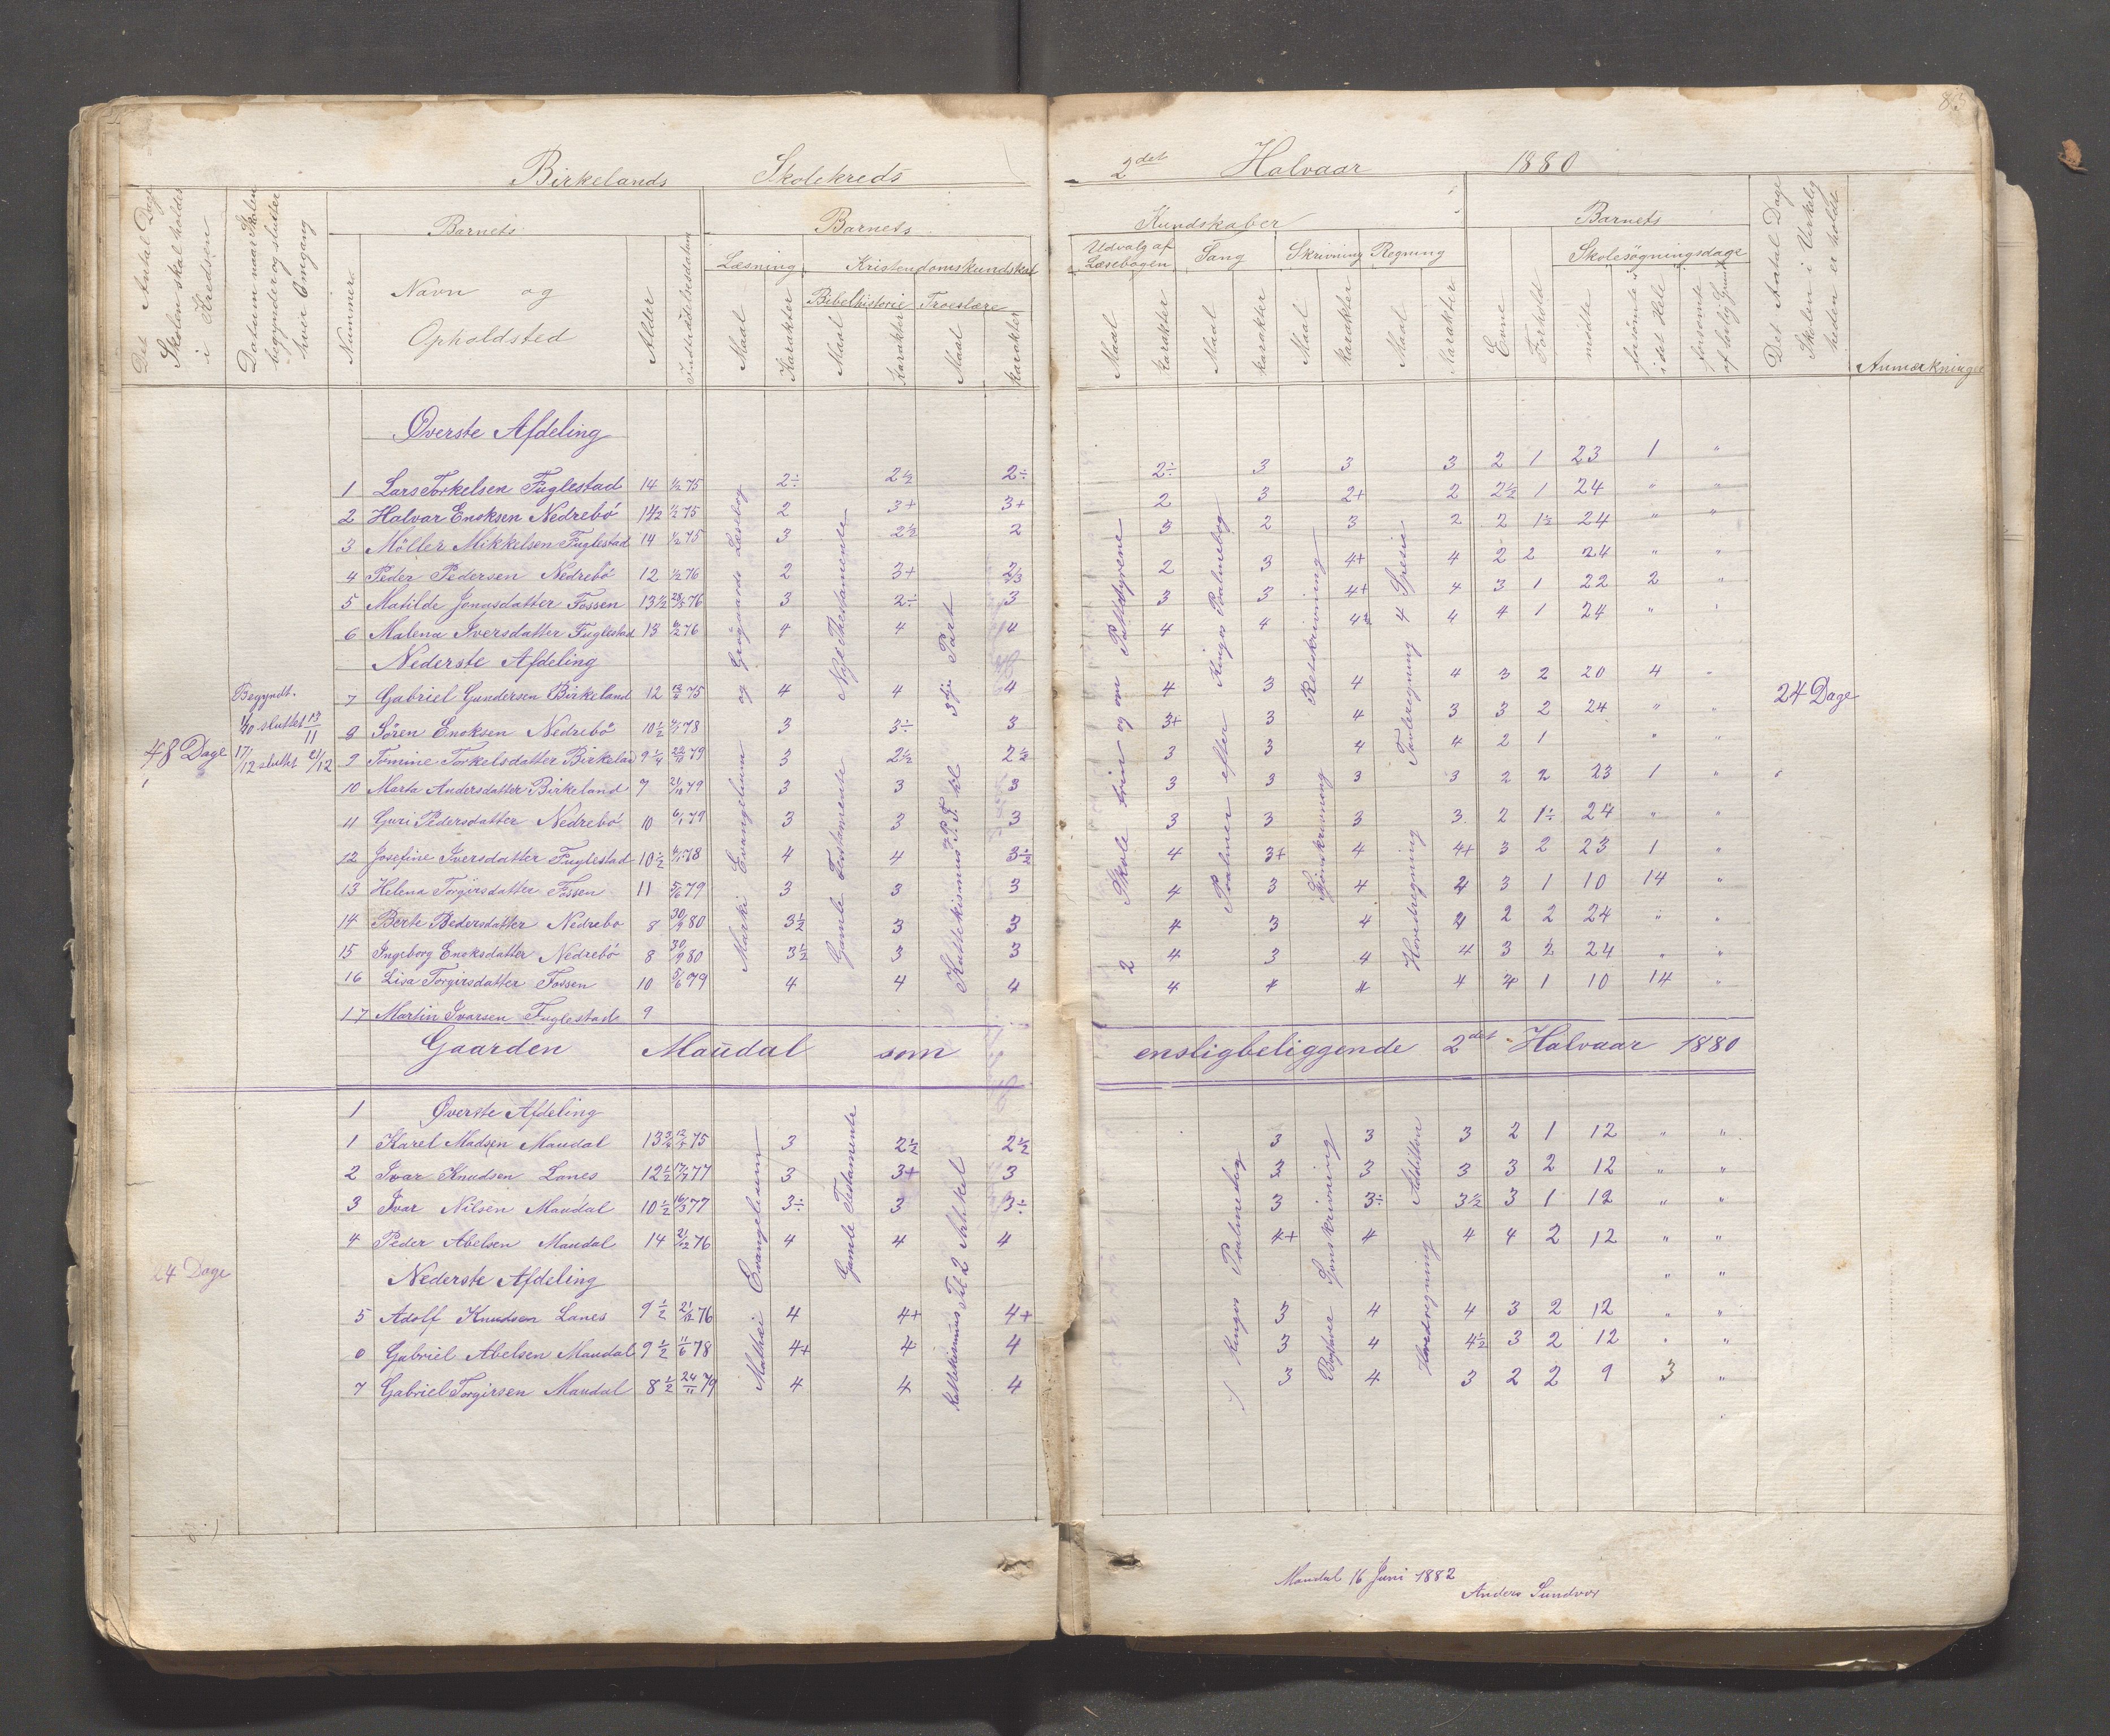 83
Birkelands Skolekreds 2det Halvaar 1880
Det Antal Dage Skolen skal holdes i Kredsen
Datum naar Skolen begynder og slutter hver Omgang
Nummere
Barnets
Navn og Opholdsted
Alder
Indtrædelsesdatum
Barnets
Kundskaber
Læsning
Kristendomskundskab
Bibelhistorie Troeslære
Maal Karakter Maal Karakter Maal Karakter
Udvalg af Læsebogen
Sang
Skrivning
Regning
Maal Karakter Maal Karakter Maal Karakter Maal Karakter
Barnets
Evne
Forhold
Skolesögningsdage
mödte
forsömte i det Hele
forsömte af lovlig Grund
Det Antal Dage Skolen i Virkeligheden er holdt
Anmærkninger
Øverste Afdeling
1 Lars Torkelsen Fuglestad 14 1/2 75 2÷ 2½ 2÷ 2÷ 3 3 3 2 1 23 1 "
2 Halvar Enoksen Nedrebö 14½ 1/2 75 2 3+ 3+ 2 3 2+ 2 2½ 1 24 " "
3 Möller Mikkelsen Fuglestad 14 1/2 75 3 2½ 2 3 2 3 2 2 1½ 24 " "
4 Peder Pedersen Nedrebö 12 1/2 76 2 3+ 2/3 2 3 4+ 4 2 2 24 " "
5 Matilde Jonasdatter Fossen 13½ 28/5 76 3 2÷ 3 3 3 4+ 4 3 1 22 2 "
6 Malena Iversdatter Fuglestad 13 6/2 76 4 4 4 4 4 4½ 4 4 1 24 " "
Nederste Afdeling
7 Gabriel Gundersen Birkeland 12 75 4 4 4 4 3 4 4 3 2 20 4 "
8 Sören Enoksen Nedrebö 10½ 78 3 3÷ 3 3+ 3 4 3 3 2 24 " "
9 Tomine Torkelsdatter Birkeland 9¼ 79 3 2½ 2½ 3 3 4 4 2 1 " "
10 Marta Andersdatter Birkeland 9 79 3 3 3 3 3 3 3 2 2 23 1 "
11 Guri Pedersdatter Nedrebö 10 6/1 79 3 3 3 3 3 3 3 2 1÷ 24 " "
12 Josefine Iversdatter Fuglestad 10½ 78 4 4 3½ 4 3+ 4 4+ 3 2 23 1 "
13 Helena Torgirsdatter Fossen 11 5/6 79 3 3 3 4 3 4 4 3 1 10 14 "
14 Berte Pedersdatter Nedrebo 8 30/9 80 3½ 3 3 4 3 4 4 2 2 24 " "
15 Ingeborg Enoksdatter Nedrebö 8 30/9 80 3½ 3 3 4 3 4 4 3 2 24 " "
16 Lisa Torgirsdatter Fossen 10 5/6 79 4 4 4 4 4 4 4 4 1 10 14 "
17 Martin Ivarsen Fuglestad 9
48 Dage
Begyndt
1/10 sluttet 13/11
17/12 sluttet 21/12
og Gaugaards Læsebog
Marki Evangelium
Nyte Thestamente
Gamle Testamente
3dje Part
Kattekismus P.F. kl
2 Skole trin og om Pattedyrene
Psalmer efter Kinges Psalmebog
Retskrivning
Sjönskrivning
4 Spesie
Tavleregning
Hovedregning
24 Dage
Gaarden Maudal som ensligbeliggende 2det Halvaar 1880
1 Øverste Afdeling
1 Karel Madsen Maudal 13¾ 75 3 2½ 2½ 3 3 3 2 1 12 " "
2 Ivar Knudsen Lanes 12½ 77 3 3+ 3 3 3 3 3 2 12 " "
3 Ivar Nilsen Maudal 10½ 16/3 77 3÷ 3 3÷ 3 3÷ 3½ 3 1 12 " "
4 Peder Abelsen Maudal 14 21/12 76 4 4 4 4+ 4 4 4 2 12 " "
24 Dage
Nederste Afdeling " "
5 Adolf Knudsen Lanes 9½ 21/12 76 4 4+ 4+ 3 4 4 3 2 12 " "
6 Gabriel Abelsen Maudal 9½ 11/6 78 4+ 4 4 3 4 4½ 3 2 12 " "
7 Gabriel Torgirsen Maudal 8½ 24/11 79 4 4 4 3 4 3 2 2 9 3 "
Mathæi Evangelium
Gamle Testamente
Kattekismus Til 2 Artikel
Kinges Psalmebog
Sjönskrivning
Addition
Hovedregning
Maudal 16 Juni 1882
Anders Sundvor